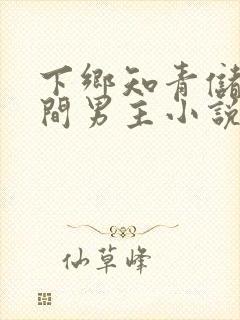 下鄉知青儲
間男主小說
仙草峰